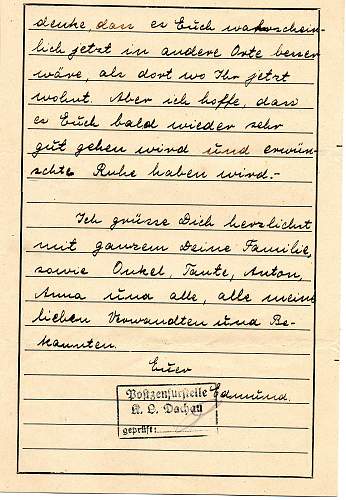 denke, dass es Euch wahrschein-
lich jetzt in andere Orte besser
wäre, als dort wo Ihr jetzt
wohnt. Aber ich hoffe, dass
es Euch bald wieder sehr
gut gehen wird und erwün-
schte Ruhe haben wird.-
Ich grüsse Dich herzlichst
mit ganzem Deine Familie,
sowie Onkel, Tante, Anton,
Anna und alle, alle meine
lieben Verwandten und Be-
kannten.
Euer
Edmund.
Postzensurstelle
K. L. Dachau
geprüft: